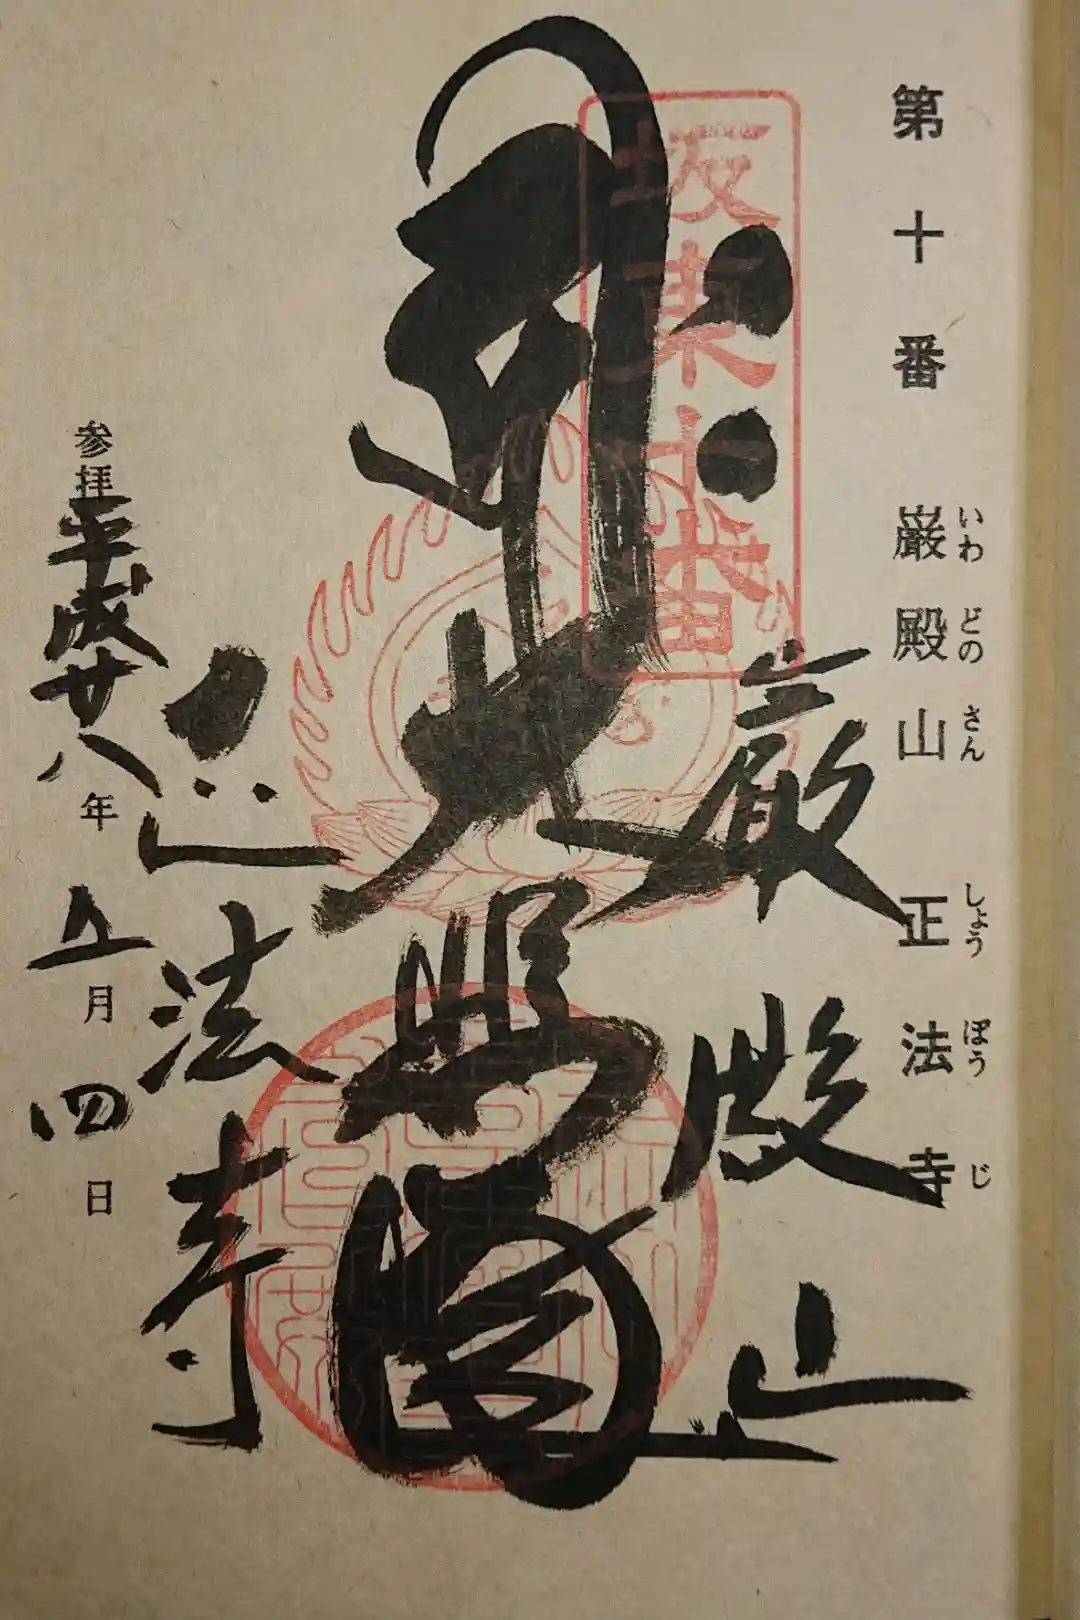 第十番 巌殿山 正法寺
いわ どの さん しょう ぼう じ
坂東十番
巌殿山
大悲閣
正法寺
参拝 平成廿八年五月四日